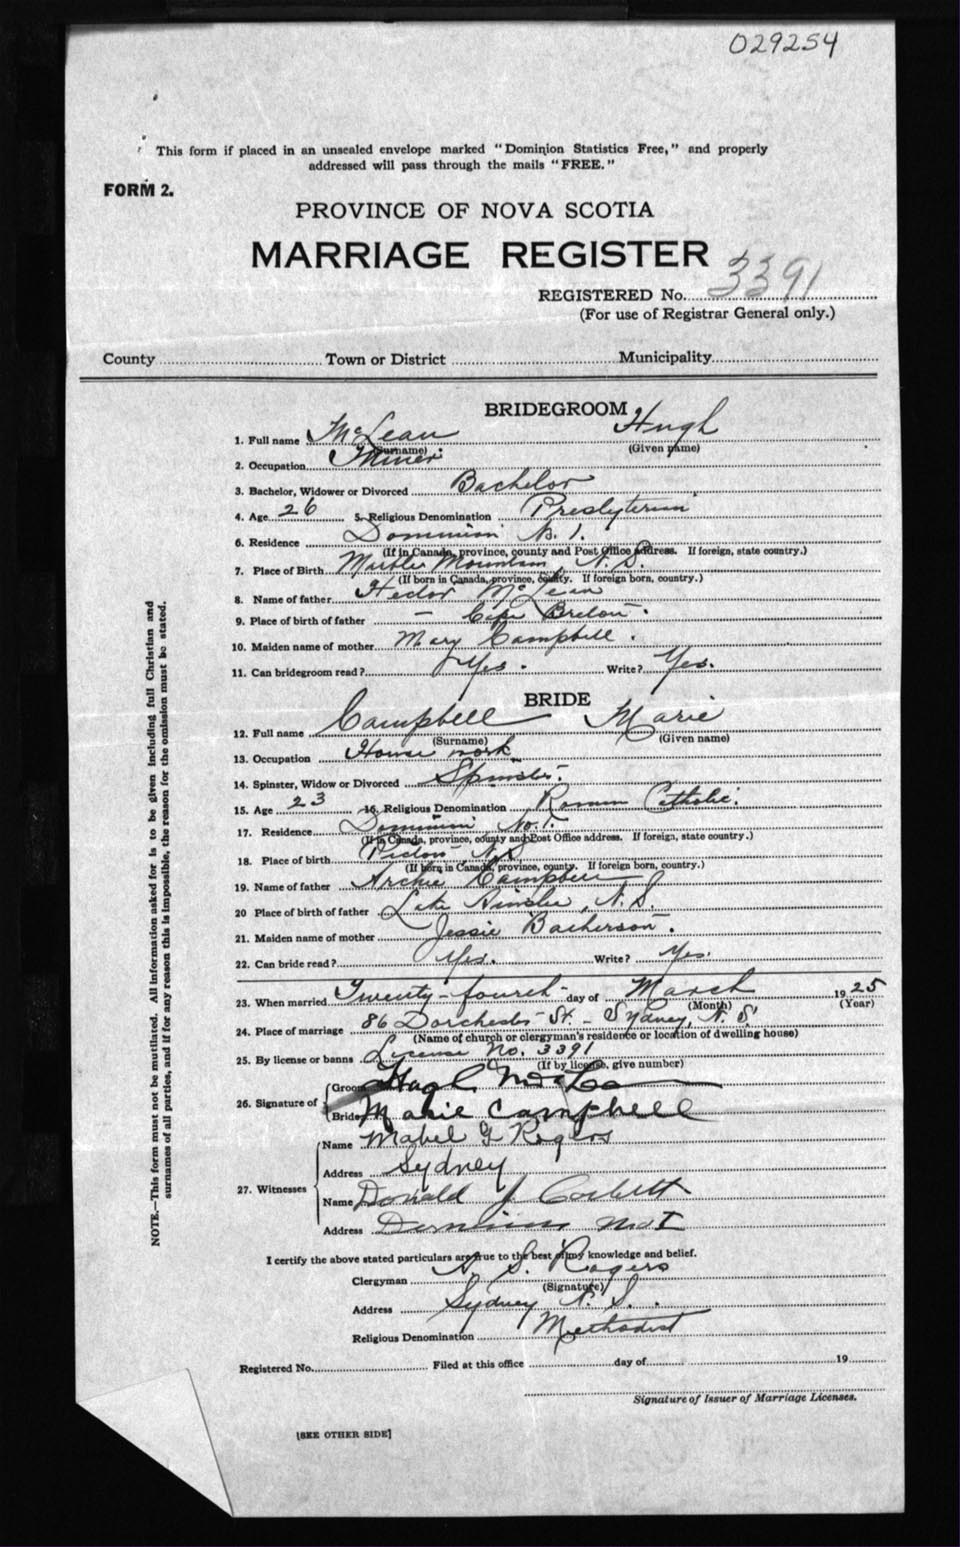 029254
This form if placed in an unsealed envelope marked "Dominion Statistics Free," and properly
addressed will pass through the mails "FREE."
FORM 2.
PROVINCE OF NOVA SCOTIA
MARRIAGE REGISTER
REGISTERED No. 3391
(For use of Registrar General only.)
County Town or District Municipality
BRIDEGROOM
1. Full name McLean Hugh
(Surname) (Given name)
2. Occupation Miner
3. Bachelor, Widower or Divorced Bachelor
4. Age 26 5. Religious Denomination Presbyterian
6. Residence Dominion No. 1.
(If in Canada, province, county and Post Office address. If foreign, state country.)
7. Place of Birth Marble Mountain N. S.
(If born in Canada, province, county. If foreign born, country.)
8. Name of father Hector McLean
9. Place of birth of father – Cape Breton.
10. Maiden name of mother Mary Campbell.
11. Can bridegroom read? Yes. Write? Yes.
BRIDE
12. Full name Campbell Marie
(Surname) (Given name)
13. Occupation House work
14. Spinster, Widow or Divorced Spinster.
15. Age 23 16. Religious Denomination Roman Catholic.
17. Residence Dominion No. 1.
(If in Canada, province, county and Post Office address. If foreign, state country.)
18. Place of birth Pictou N.S.
(If born in Canada, province, county. If foreign born, country.)
19. Name of father Archie Campbell
20 Place of birth of father Lake Ainslie, N. S.
21. Maiden name of mother Jessie .
22. Can bride read? Yes. Write? Yes.
23. When married Twenty-fourth day of March 1925
(Month) (Year)
24. Place of marriage 86 Dorchester St. – Sydney, N. S.
(Name of church or clergyman's residence or location of dwelling house)
25. By license or banns License No. 3391
(If by license, give number)
26. Signature of
Groom Hugh McLean
Bride Marie Campbell
27. Witnesses
Name Mabel G Rogers
Address Sydney
Name Donald J Corbett
Address Dominion No I
I certify the above stated particulars are true to the best of my knowledge and belief.
Clergyman A. S. Rogers
(Signature)
Address Sydney N. S.
Religious Denomination Methodist
Registered No. Filed at this office day of 19
Signature of Issuer of Marriage Licenses.
[SEE OTHER SIDE]
NOTE.—This form must not be mutilated. All information asked for is to be given including full Christian and
surnames of all parties, and if for any reason this is impossible, the reason for the omission must be stated.